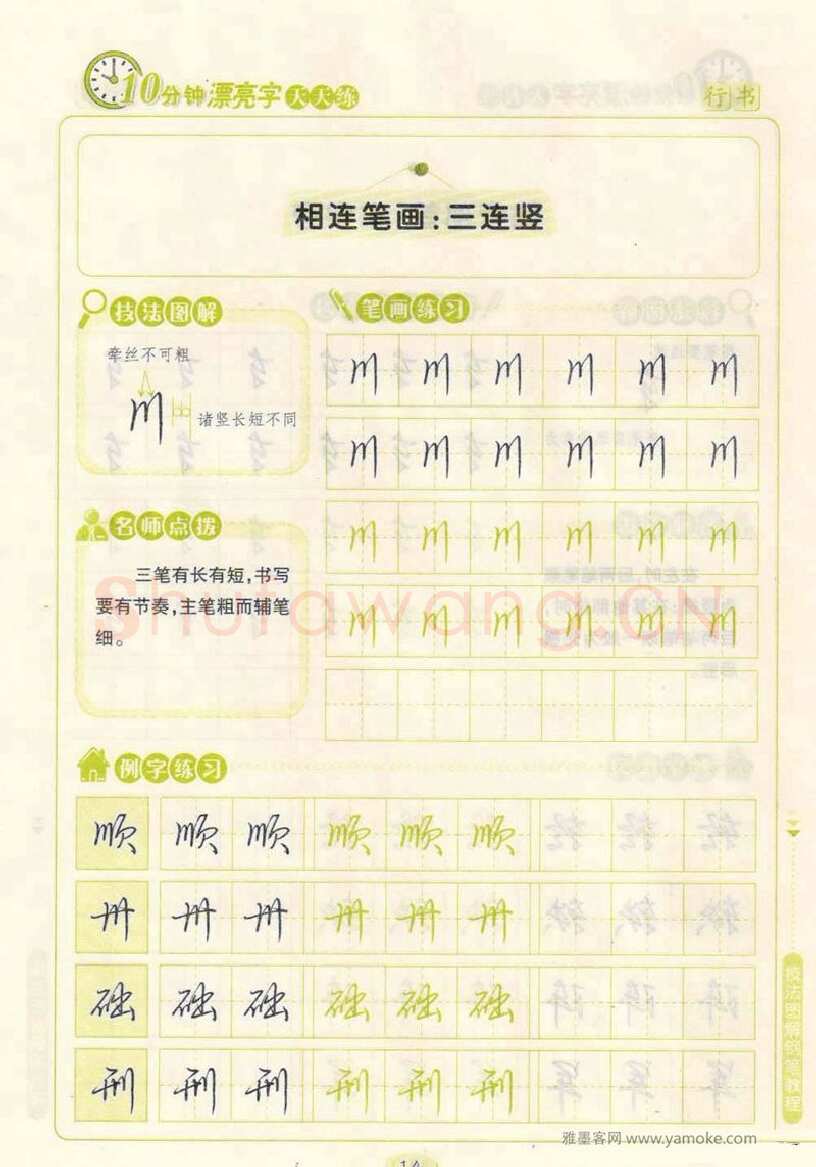 10分钟漂亮字天天练
行书
相连笔画：三连竖
技法图解
牵丝不可粗
川
诸竖长短不同
笔画练习
川 川 川 川 川 川
川 川 川 川 川 川
川 川 川 川 川 川
川 川 川 川 川 川
名师点拨
三笔有长有短，书写
要有节奏，主笔粗而辅笔
细。
Shufawang.CN
例字练习
顺 顺 顺 顺 顺 顺
册 册 册 册 册 册
础 础 础 础 础 础
刑 刑 刑 刑 刑 刑
技法图解钢笔教程
雅墨客网 www.yamoke.com
14